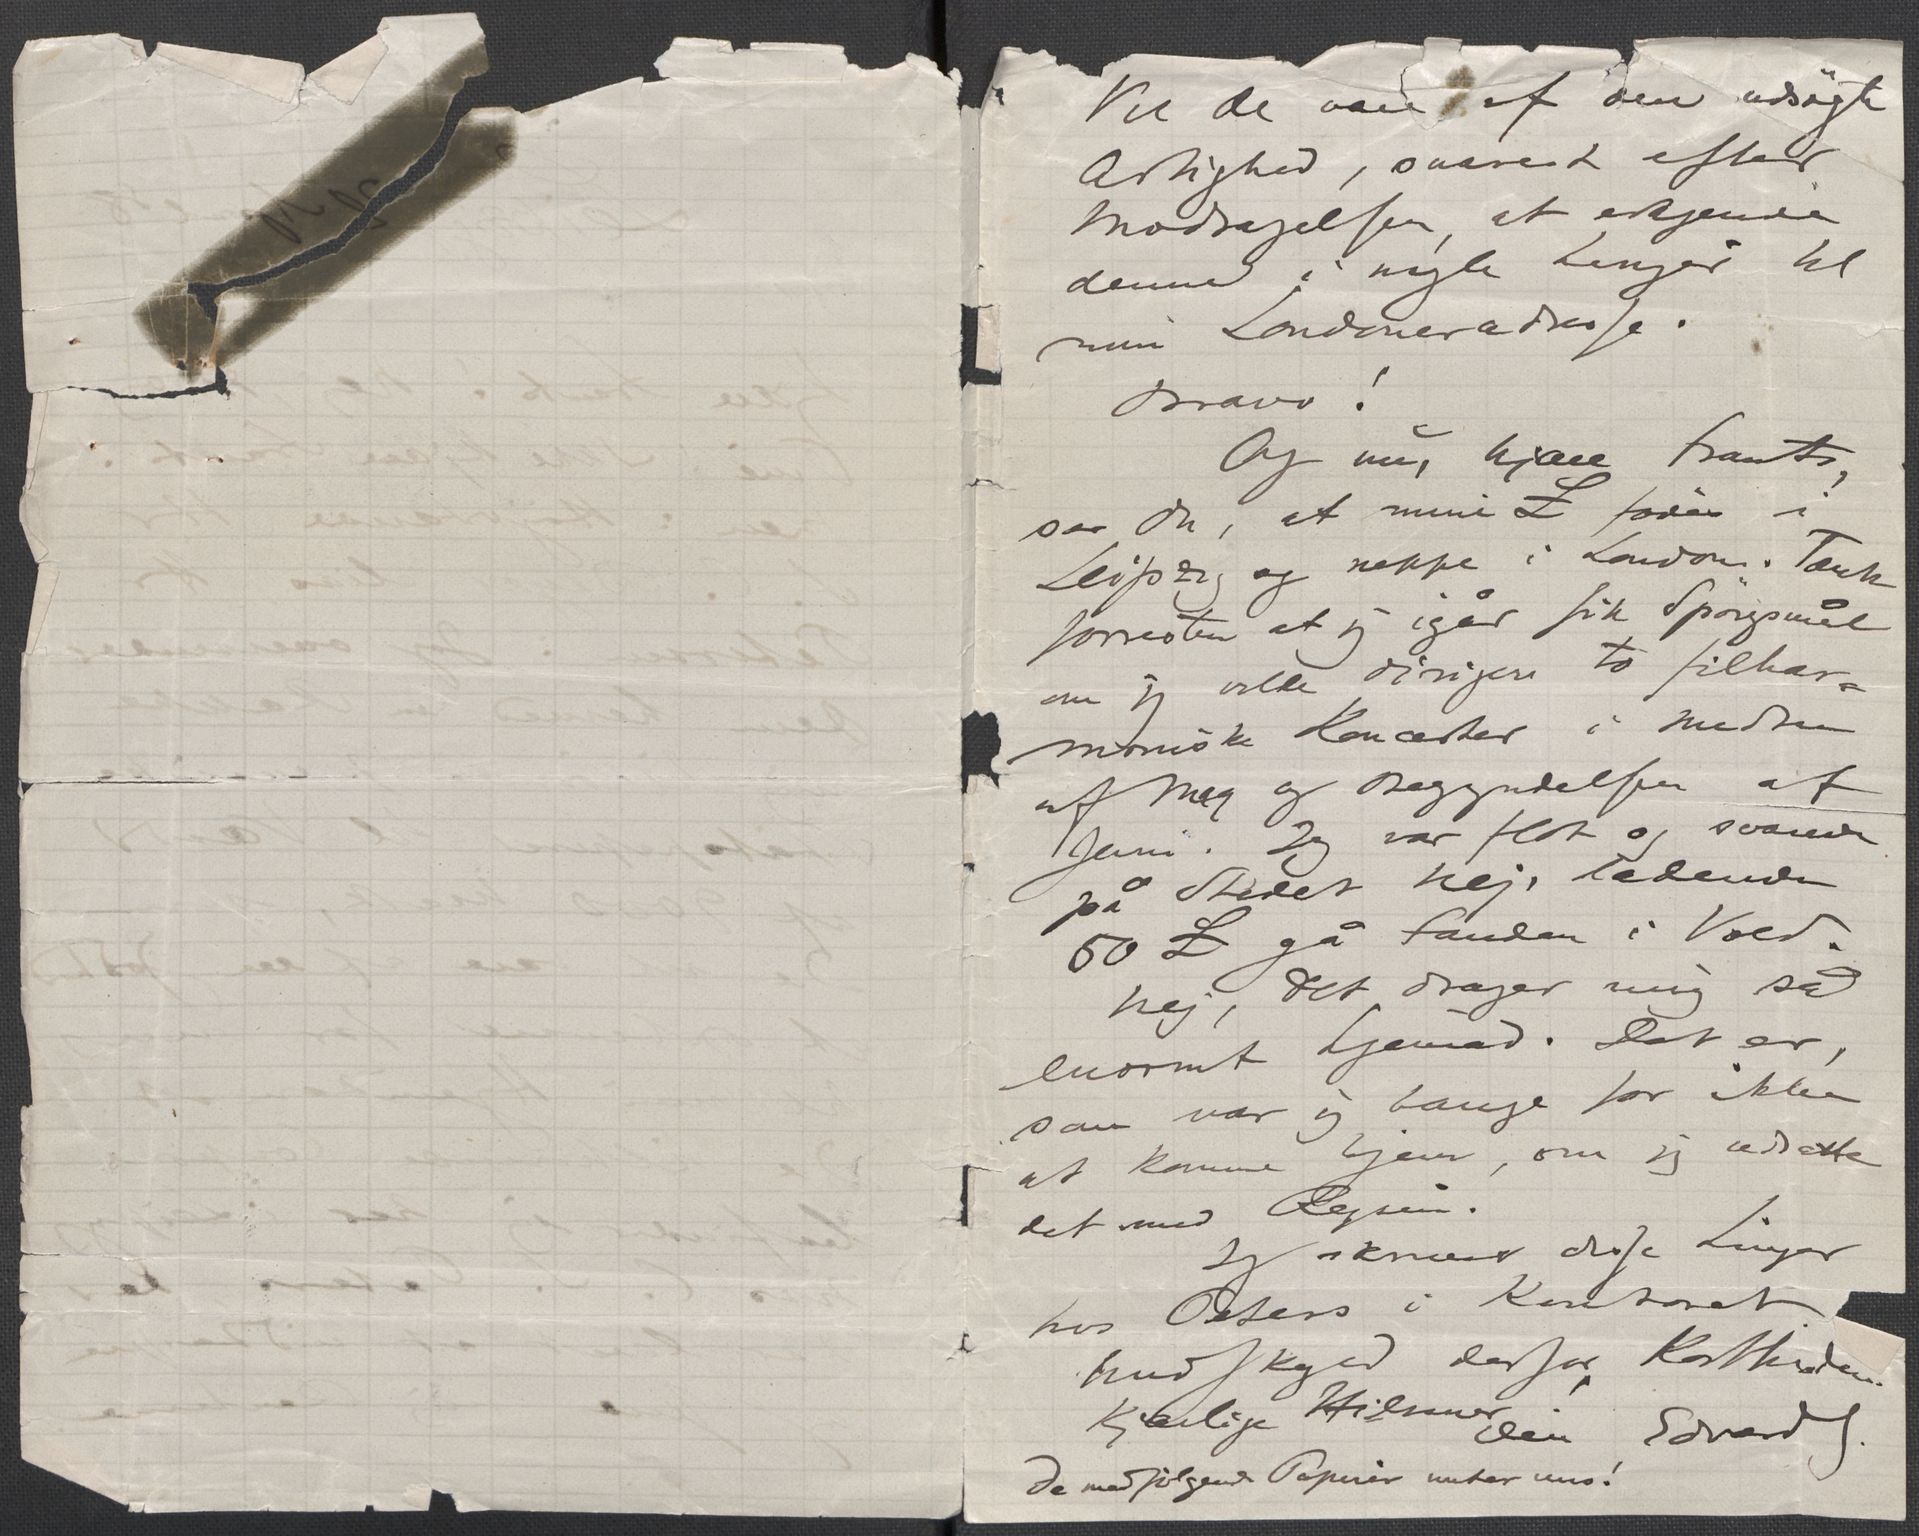 Vil De være af den udsøgte
Artighed, snarest efter
Modtagelsen, at erkjende
denne i nogle Linjer til
min Londoneradresse.
Bravo!
Og nu, kjære Frants,
ser Du, at mine £ føder i
Leipzig og neppe i London. Tænk
forresten at jeg igår fik Spörgsmål
om jeg vilde dirigere to filhar-
moniske Koncerter i Midten
af Maj og Begyndelsen af
Juni. Jeg var flot og svarede
på Stedet nej, ladende
50 £ gå Fanden i Vold.
Nej, det drager mig så
enormt hjemad. Det er,
som var jeg bange for ikke
at komme hjem, om jeg udsatte
det med Rejsen.
Jeg skriver disse Linjer
hos Peters i Kontoret
Undskyld derfor Kortheden.
Kjærlige Hilsener
Din Edvard G.
De medfølgende Papirer unter uns!